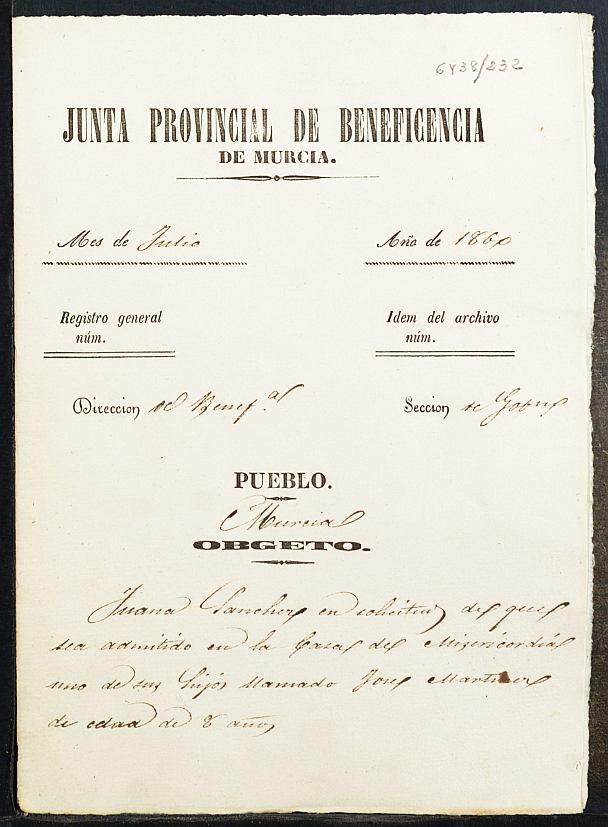 6438/232
JUNTA PROVINCIAL DE BENEFICENCIA
DE MURCIA.
Mes de Julio
Año de 1860
Registro general
núm.
Idem del archivo
núm.
Direccion de Benef.ª
Seccion de
PUEBLO.
Murcia
OBGETO.
Juana Sanchez en solicitud de que
sea admitido en la Casa de Misericordia
uno de sus hijos llamado Jose Martinez
de edad de 8 años